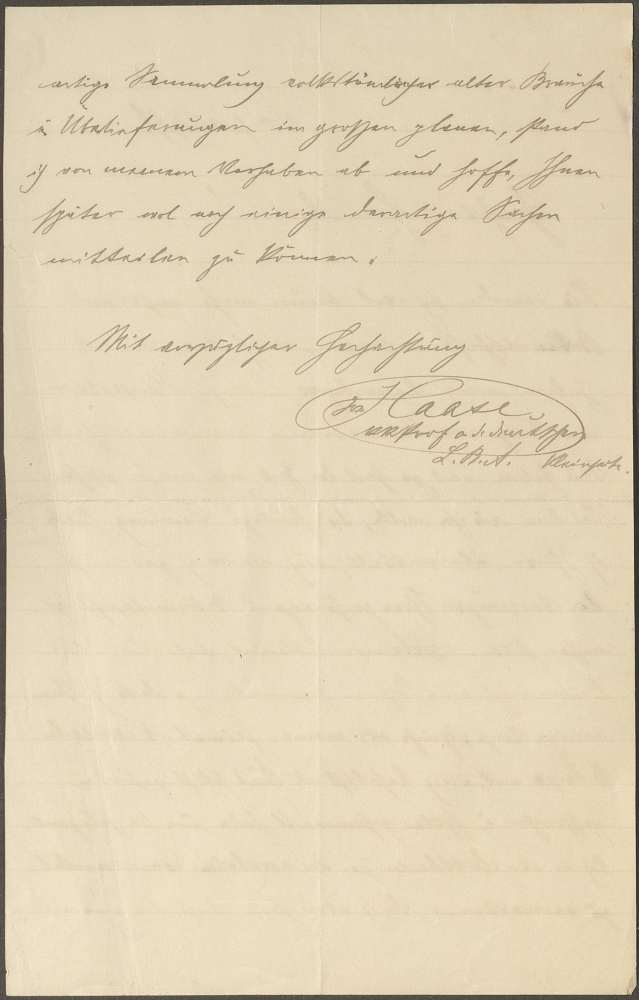 artige Sammlung volkstümlicher alter Bräuche
u Überlieferungen im großen planen, stand
ich von meinem Vorhaben ab und hoffe, Ihnen
später wol noch einige derartige Sachen
mitteilen zu können.
Mit vorzüglicher Hochachtung
Haase
Prof a. d. deutschen
L. B. A.